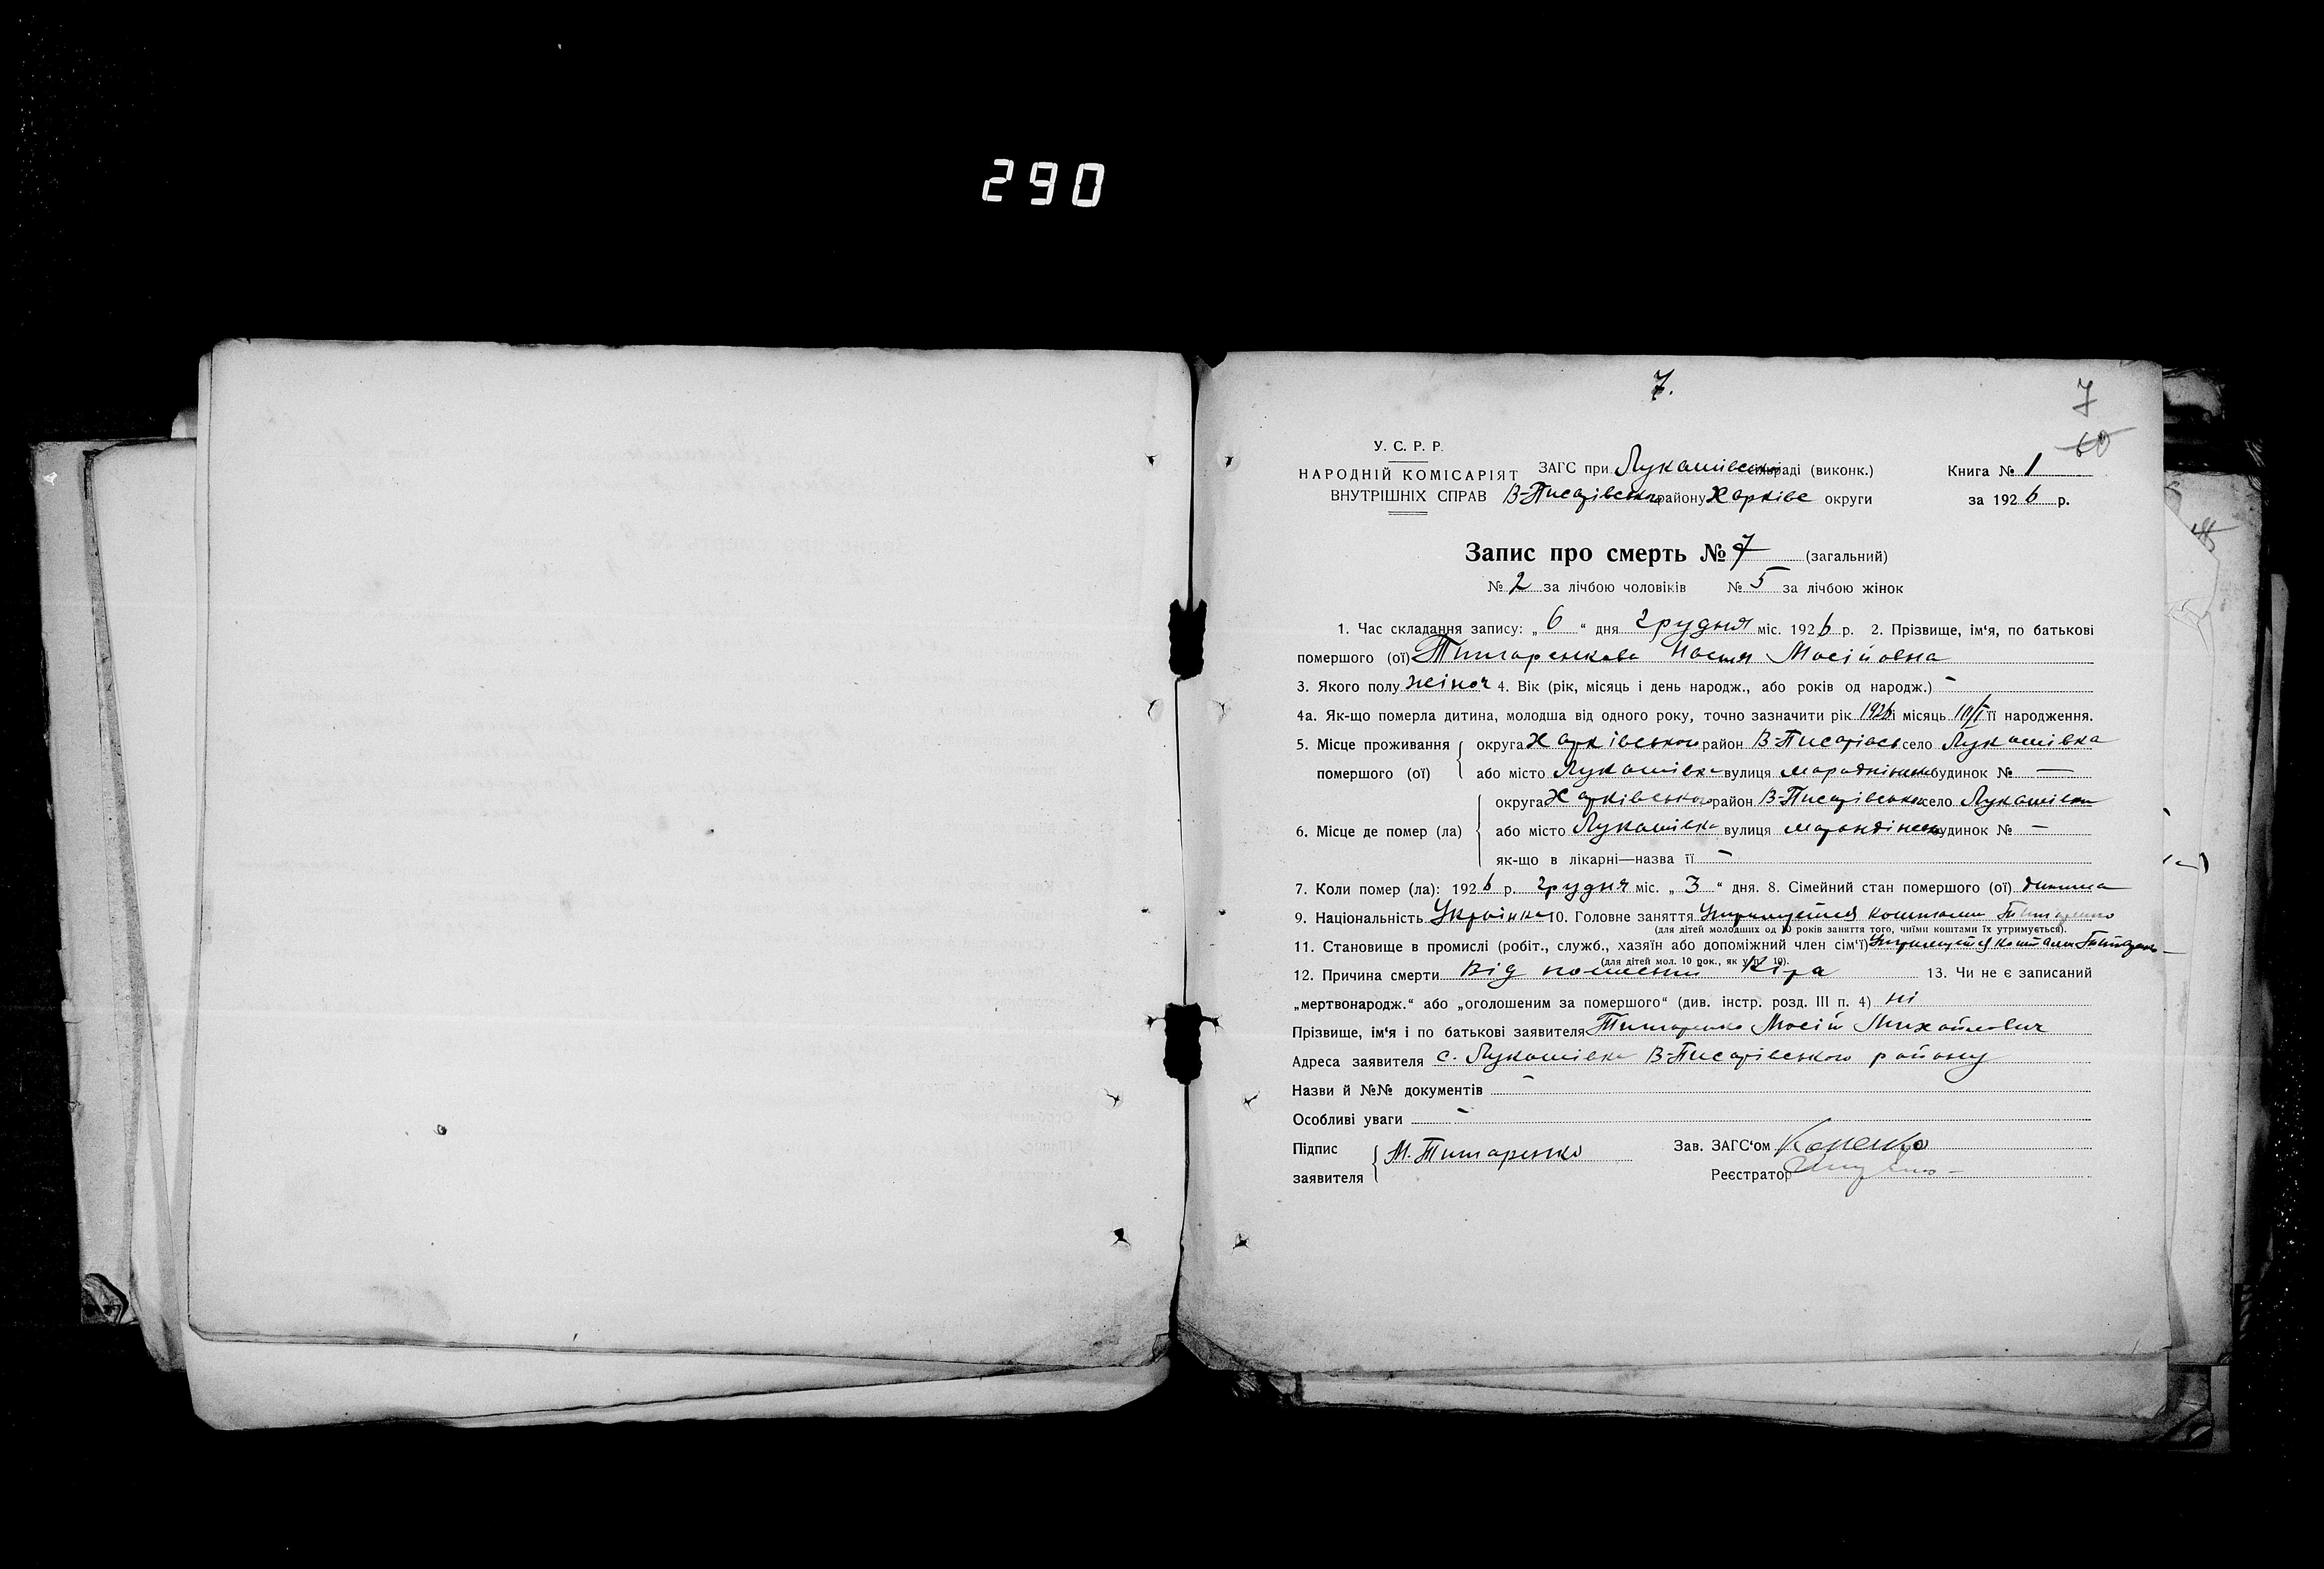 290
7.
7
60
У. С. Р. Р.
НАРОДНІЙ КОМІСАРІЯТ
ВНУТРІШНІХ СПРАВ
ЗАГС при Лукашівській раді (виконк.)
В-Писарівського району Харківс округи
Книга № 1
за 1926 р.
Запис про смерть № 7 (загальний)
№ 2 за лічбою чоловіків № 5 за лічбою жінок
1. Час складання запису: „6“ дня грудня міс. 1926 р. 2. Прізвище, ім'я, по батькові
помершого (ої) Титаренкова Настя Мосійовна
3. Якого полу жіноч 4. Вік (рік, місяць і день народж., або років од народж.) -
4а. Як-що померла дитина, молодша від одного року, точно зазначити рік 1926 і місяць 10/I її народження.
5. Місце проживання помершого (ої)
округа Харківського район В-Писарівськ село Лукашівка
або місто Лукашівка вулиця будинок № —
6. Місце де помер (ла)
округа Харківського район В-Писарівського село Лукашівка
або місто Лукашівка вулиця будинок № —
як-що в лікарні—назва її -
7. Коли помер (ла): 1926 р. грудня міс. „3“ дня. 8. Сімейний стан помершого (ої) дитина
9. Національність Українка 10. Головне заняття коштами
(для дітей молодших од 10 років заняття того, чиїми коштами їх утримується).
11. Становище в промислі (робіт., служб., хазяїн або допоміжний член сім'ї) коштами
(для дітей мол. 10 рок., як у п. 10).
12. Причина смерти Від Кіра 13. Чи не є записаний
„мертвонародж.“ або „оголошеним за помершого“ (див. інстр. розд. III п. 4) ні
Прізвище, ім'я і по батькові заявителя Титаренко Мосій Михайлович
Адреса заявителя с. Лукашівка В-Писарівського району
Назви й №№ документів -
Особливі уваги -
Підпис заявителя М. Титаренко
Зав. ЗАГС'ом
Реєстратор